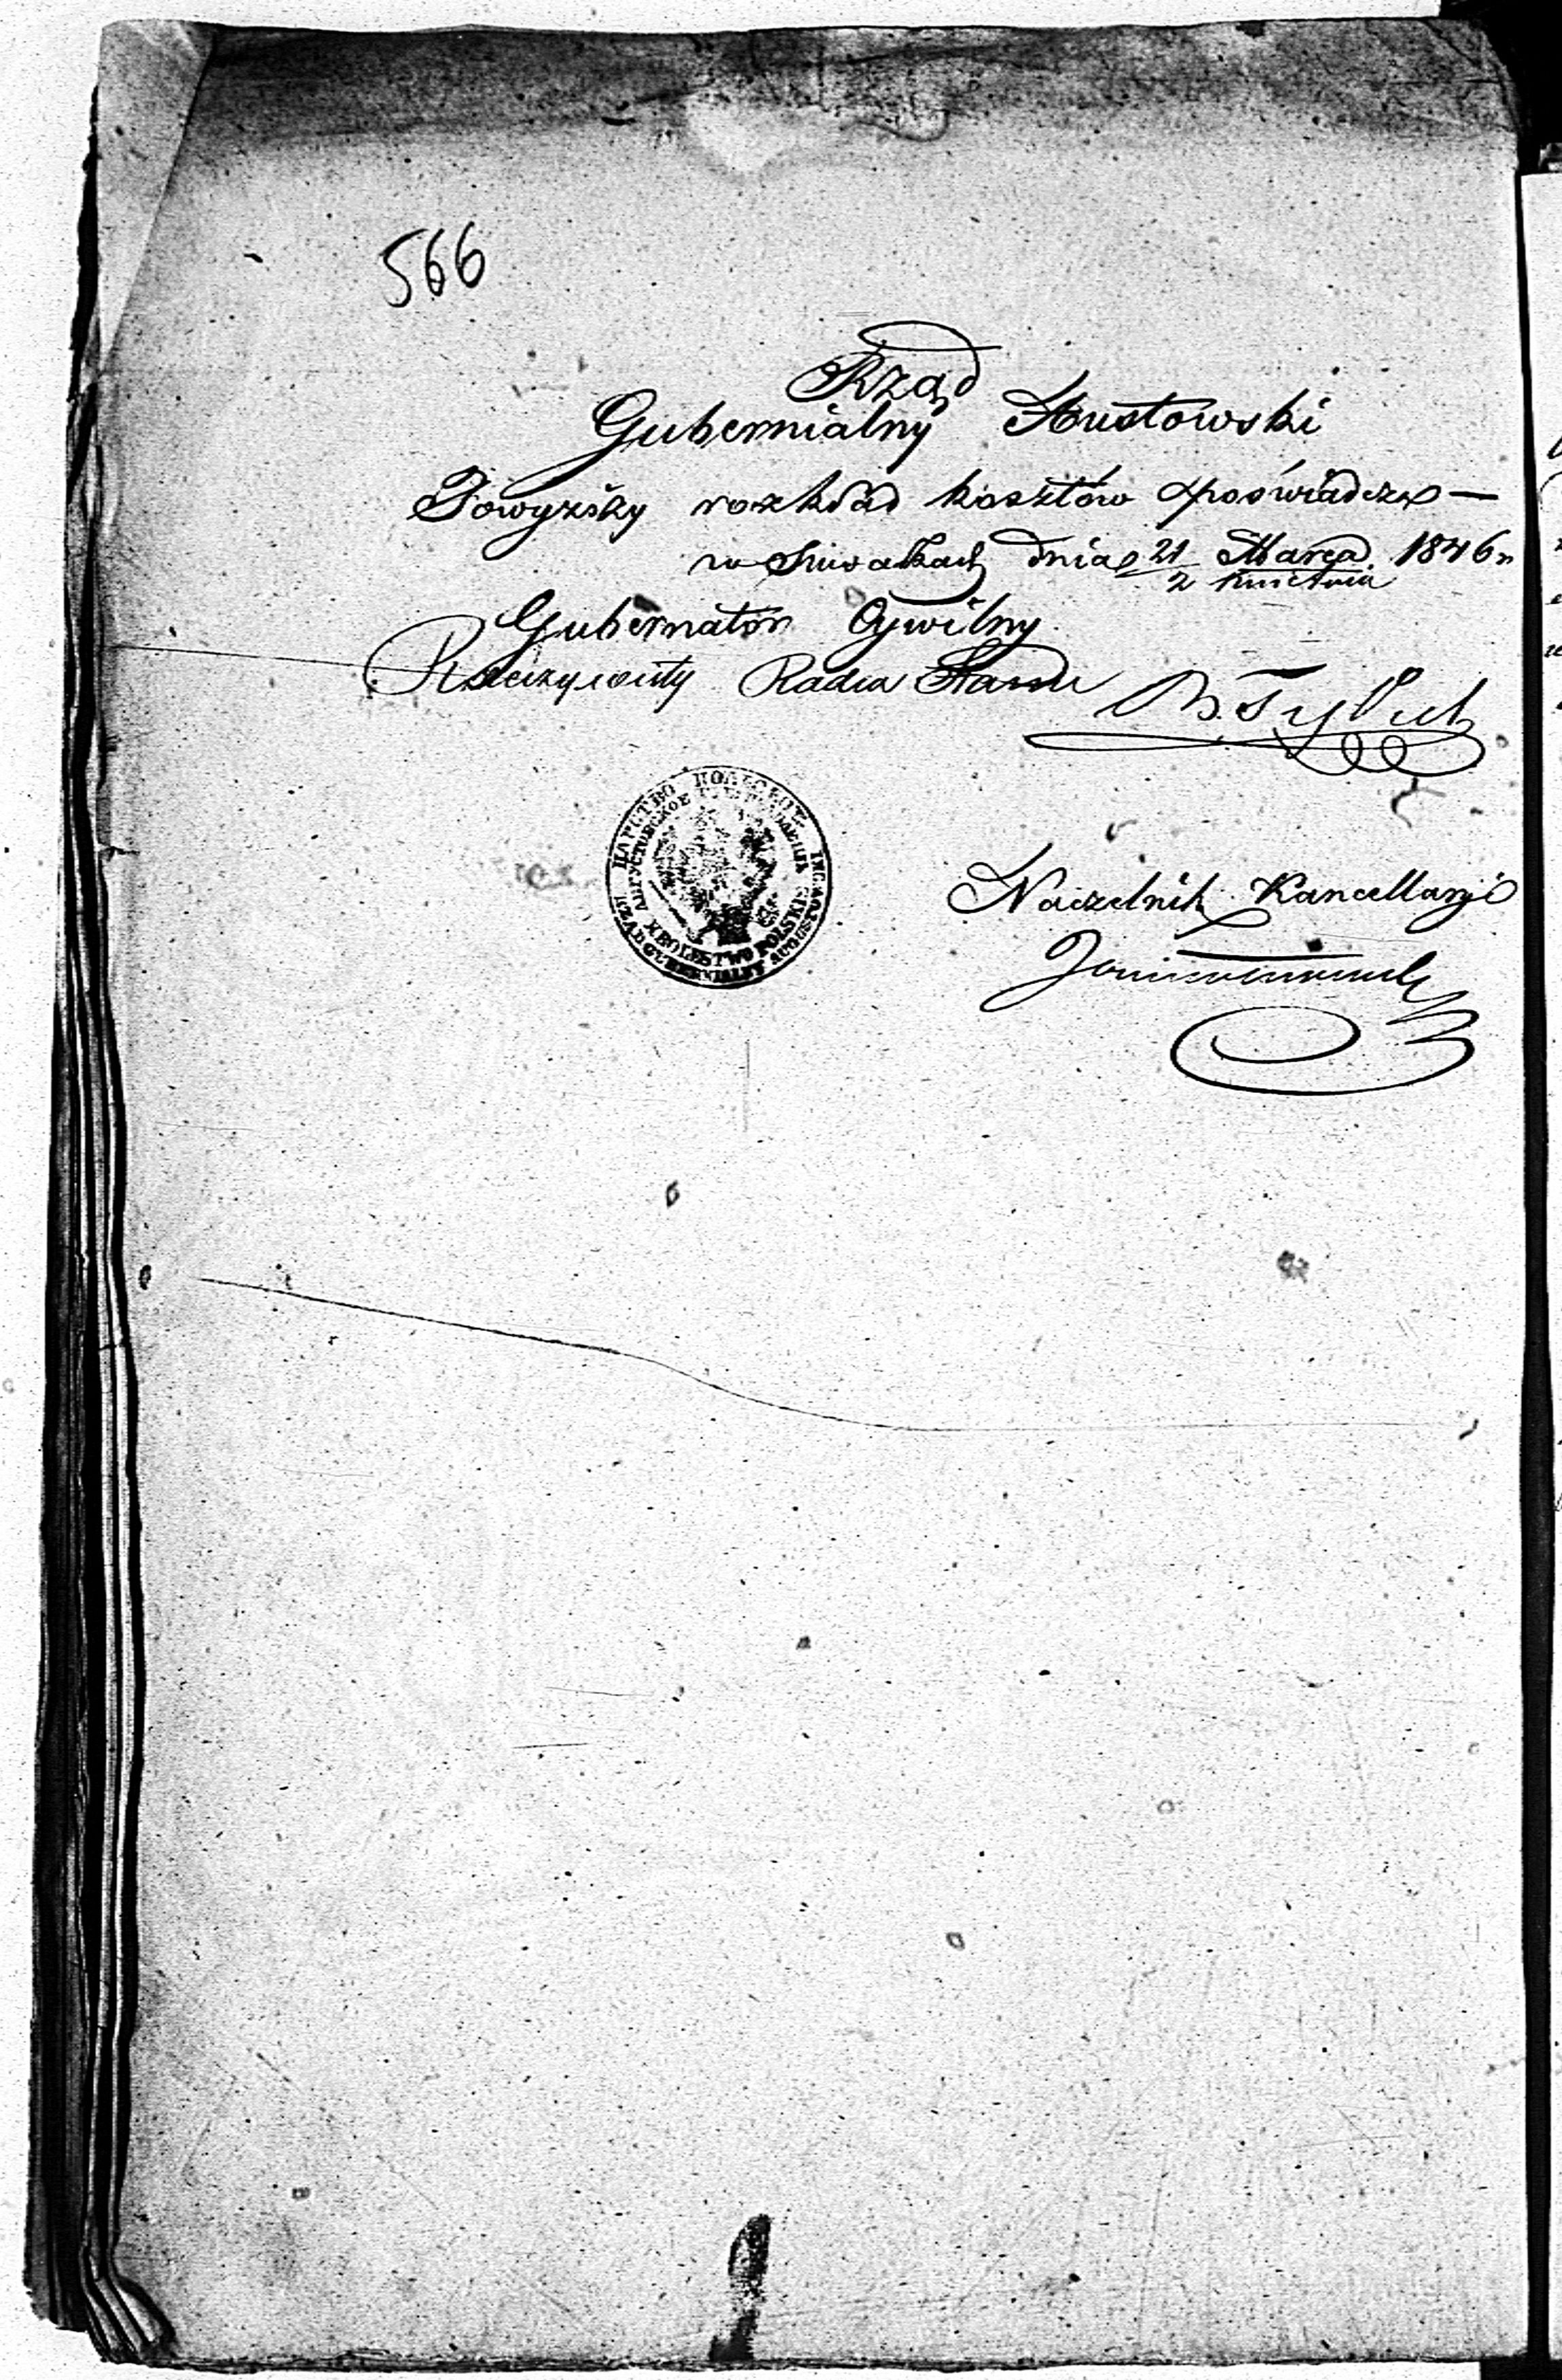 566
Rząd
Gubernialny Augustowski
Powyższy rozkład kosztów poświadcza —
w Suwałkach dnia 21 Marca 1846 r.
2 Kwietnia
Gubernator Cywilny
Rzeczywisty Radca Stanu
ЦАРСТВО ПОЛЬСКОЕ
АВГУСТОВСКОЕ
KROLESTWO POLSKIE
RZĄD GUBERNIALNY AUGUSTOWSKI
Naczelnik Kancellaryi